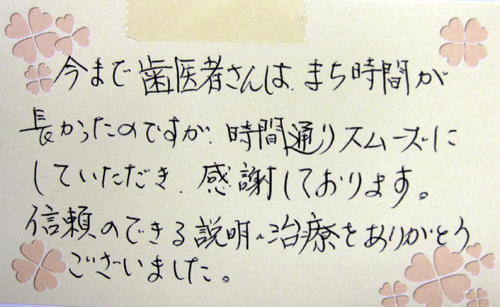 今まで歯医者さんは、まち時間が
長かったのですが、時間通りスムーズに
していただき、感謝しております。
信頼のできる説明、治療をありがとう
ございました。